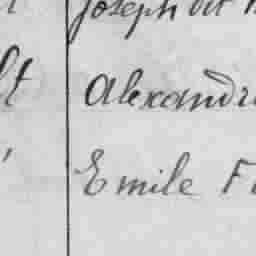 Joseph dit
Alexandr
Emile F